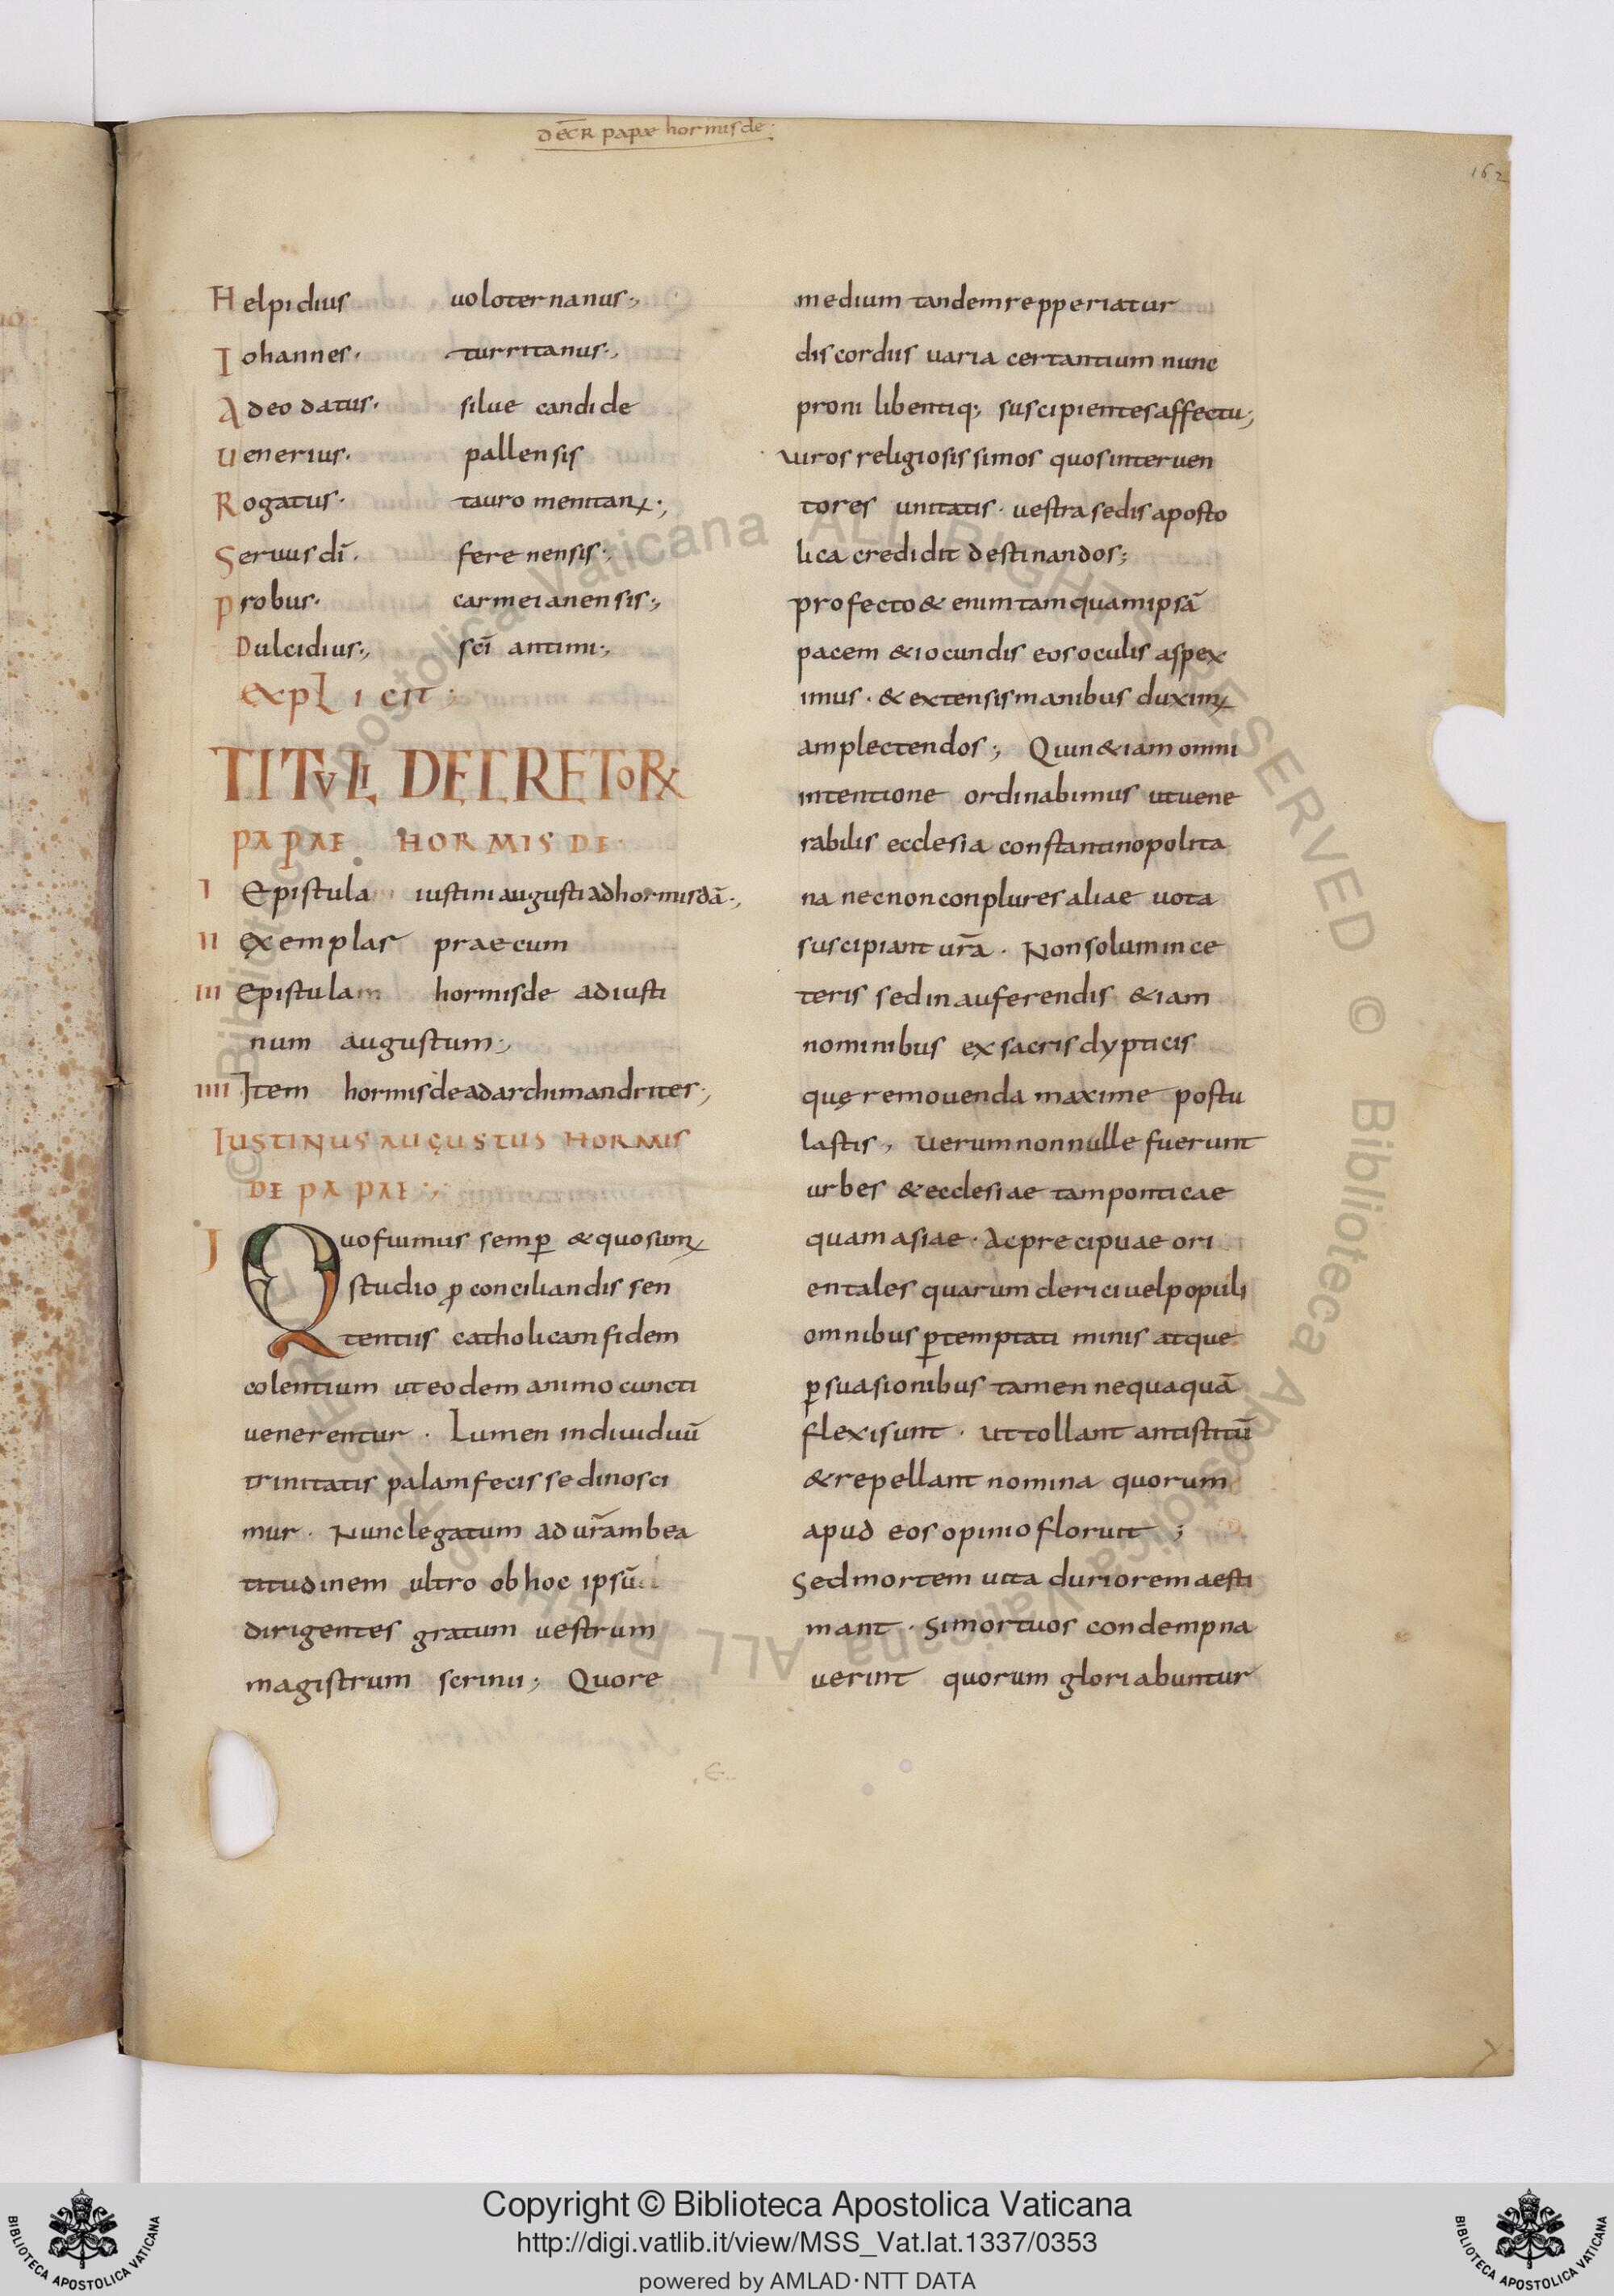 DECR papae hormisde
162
Helpidius uoloternanus;
Iohannes. turritanus;
Adeodatus. silue candide
Uenerius. pallensis
Rogatus. tauromenitanꝰ;
Seruus dī. ferenensis;
Probus. carmeianensis;
Dulcidius; scī antimi;
explicit;
TITVLI DECRETORꝜ
PAPAE HORMISDE.
I Epistula iustini augusti ad hormisdā;
II exemplar praecum
III Epistulam hormisde ad iusti
num augustum;
IIII Item hormisde ad archimandrites;
IUSTINUS AUGUSTUS HORMIS
DE PAPAE;
I Quo fuimus semꝑ & quo sumꝰ
studio ꝓ conciliandis sen
tentiis catholicam fidem
colentium ut eodem animo cuncti
uenerentur. Lumen indiuiduū
trinitatis palam fecisse dinosci
mur. Nunc legatum ad ur̄am bea
titudinem ultro ob hoc ipsū
dirigentes gratum uestrum
magistrum scrinii; Quo re
medium tandem repperiatur
discordiis uaria certantium nunc
proni libentiq; suscipientes affectu;
Uiros religiosissimos quos interuen
tores unitatis. uestra sedis aposto
lica credidit destinandos;
profecto & enim tamquam ipsā
pacem & iocundis eos oculis aspex
imus. & extensis manibus duximꝰ
amplectendos; Quin & iam omni
intentione ordinabimus ut uene
rabilis ecclesia constantinopolita
na necnon conplures aliae uota
suscipiant ur̄a. Non solum in ce
teris sed in auferendis & iam
nominibus ex sacris dypticis
quę remouenda maxime postu
lastis; Uerum nonnulle fuerunt
urbes & ecclesiae tam ponticae
quam asiae. Ac precipuae ori
entales quarum clerici uel populi
omnibus ꝑtemptati minis atque
ꝑsuasionibus tamen nequaquā
flexi sunt. Ut tollant antistitū
& repellant nomina quorum
apud eos opinio floruit;
Sed mortem uita duriorem aesti
mant. Si mortuos condempna
uerint quorum gloriabuntur
Copyright © Biblioteca Apostolica Vaticana
http://digi.vatlib.it/view/MSS_Vat.lat.1337/0353
powered by AMLAD·NTT DATA
BIBLIOTECA APOSTOLICA VATICANA
BIBLIOTECA APOSTOLICA VATICANA